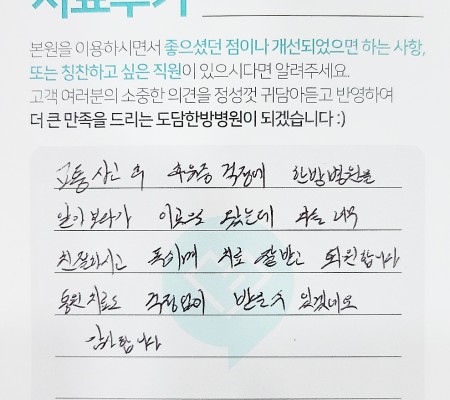 치료후기
본원을 이용하시면서 좋으셨던 점이나 개선되었으면 하는 사항,
또는 칭찬하고 싶은 직원이 있으시다면 알려주세요.
고객 여러분의 소중한 의견을 정성껏 귀담아듣고 반영하여
더 큰 만족을 드리는 도담한방병원이 되겠습니다 :)
교통사고 후 후유증 걱정에 한방병원을
알아보다가 이곳으로 왔는데 너무
친절하시고 치료 잘받고 퇴원합니다
통원치료도 걱정없이 받을수 있겠네요
감사합니다